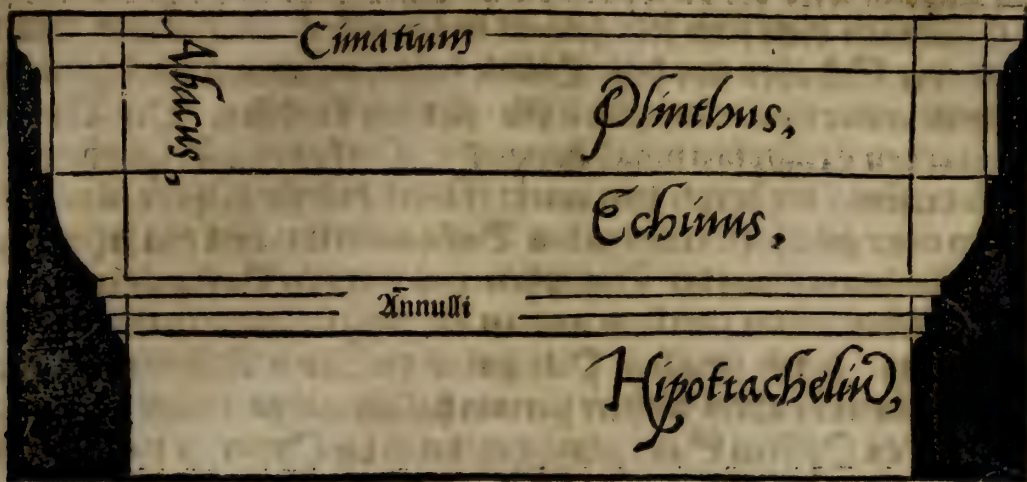 Cimatium
Abacus,
Plinthus,
Echinus,
Ānnulli
Hipotracheliū,